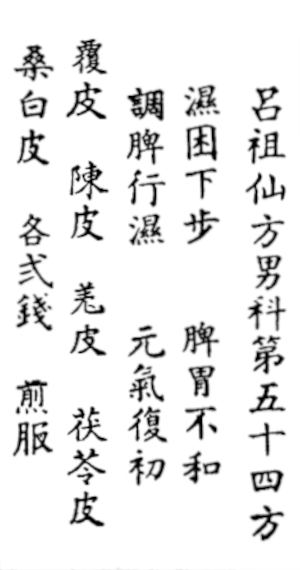 呂祖仙方男科第五十四方
濕困下步 脾胃不和
調脾行濕 元氣復初
覆皮 陳皮 羌皮 茯苓皮
桑白皮 各弍錢 煎服